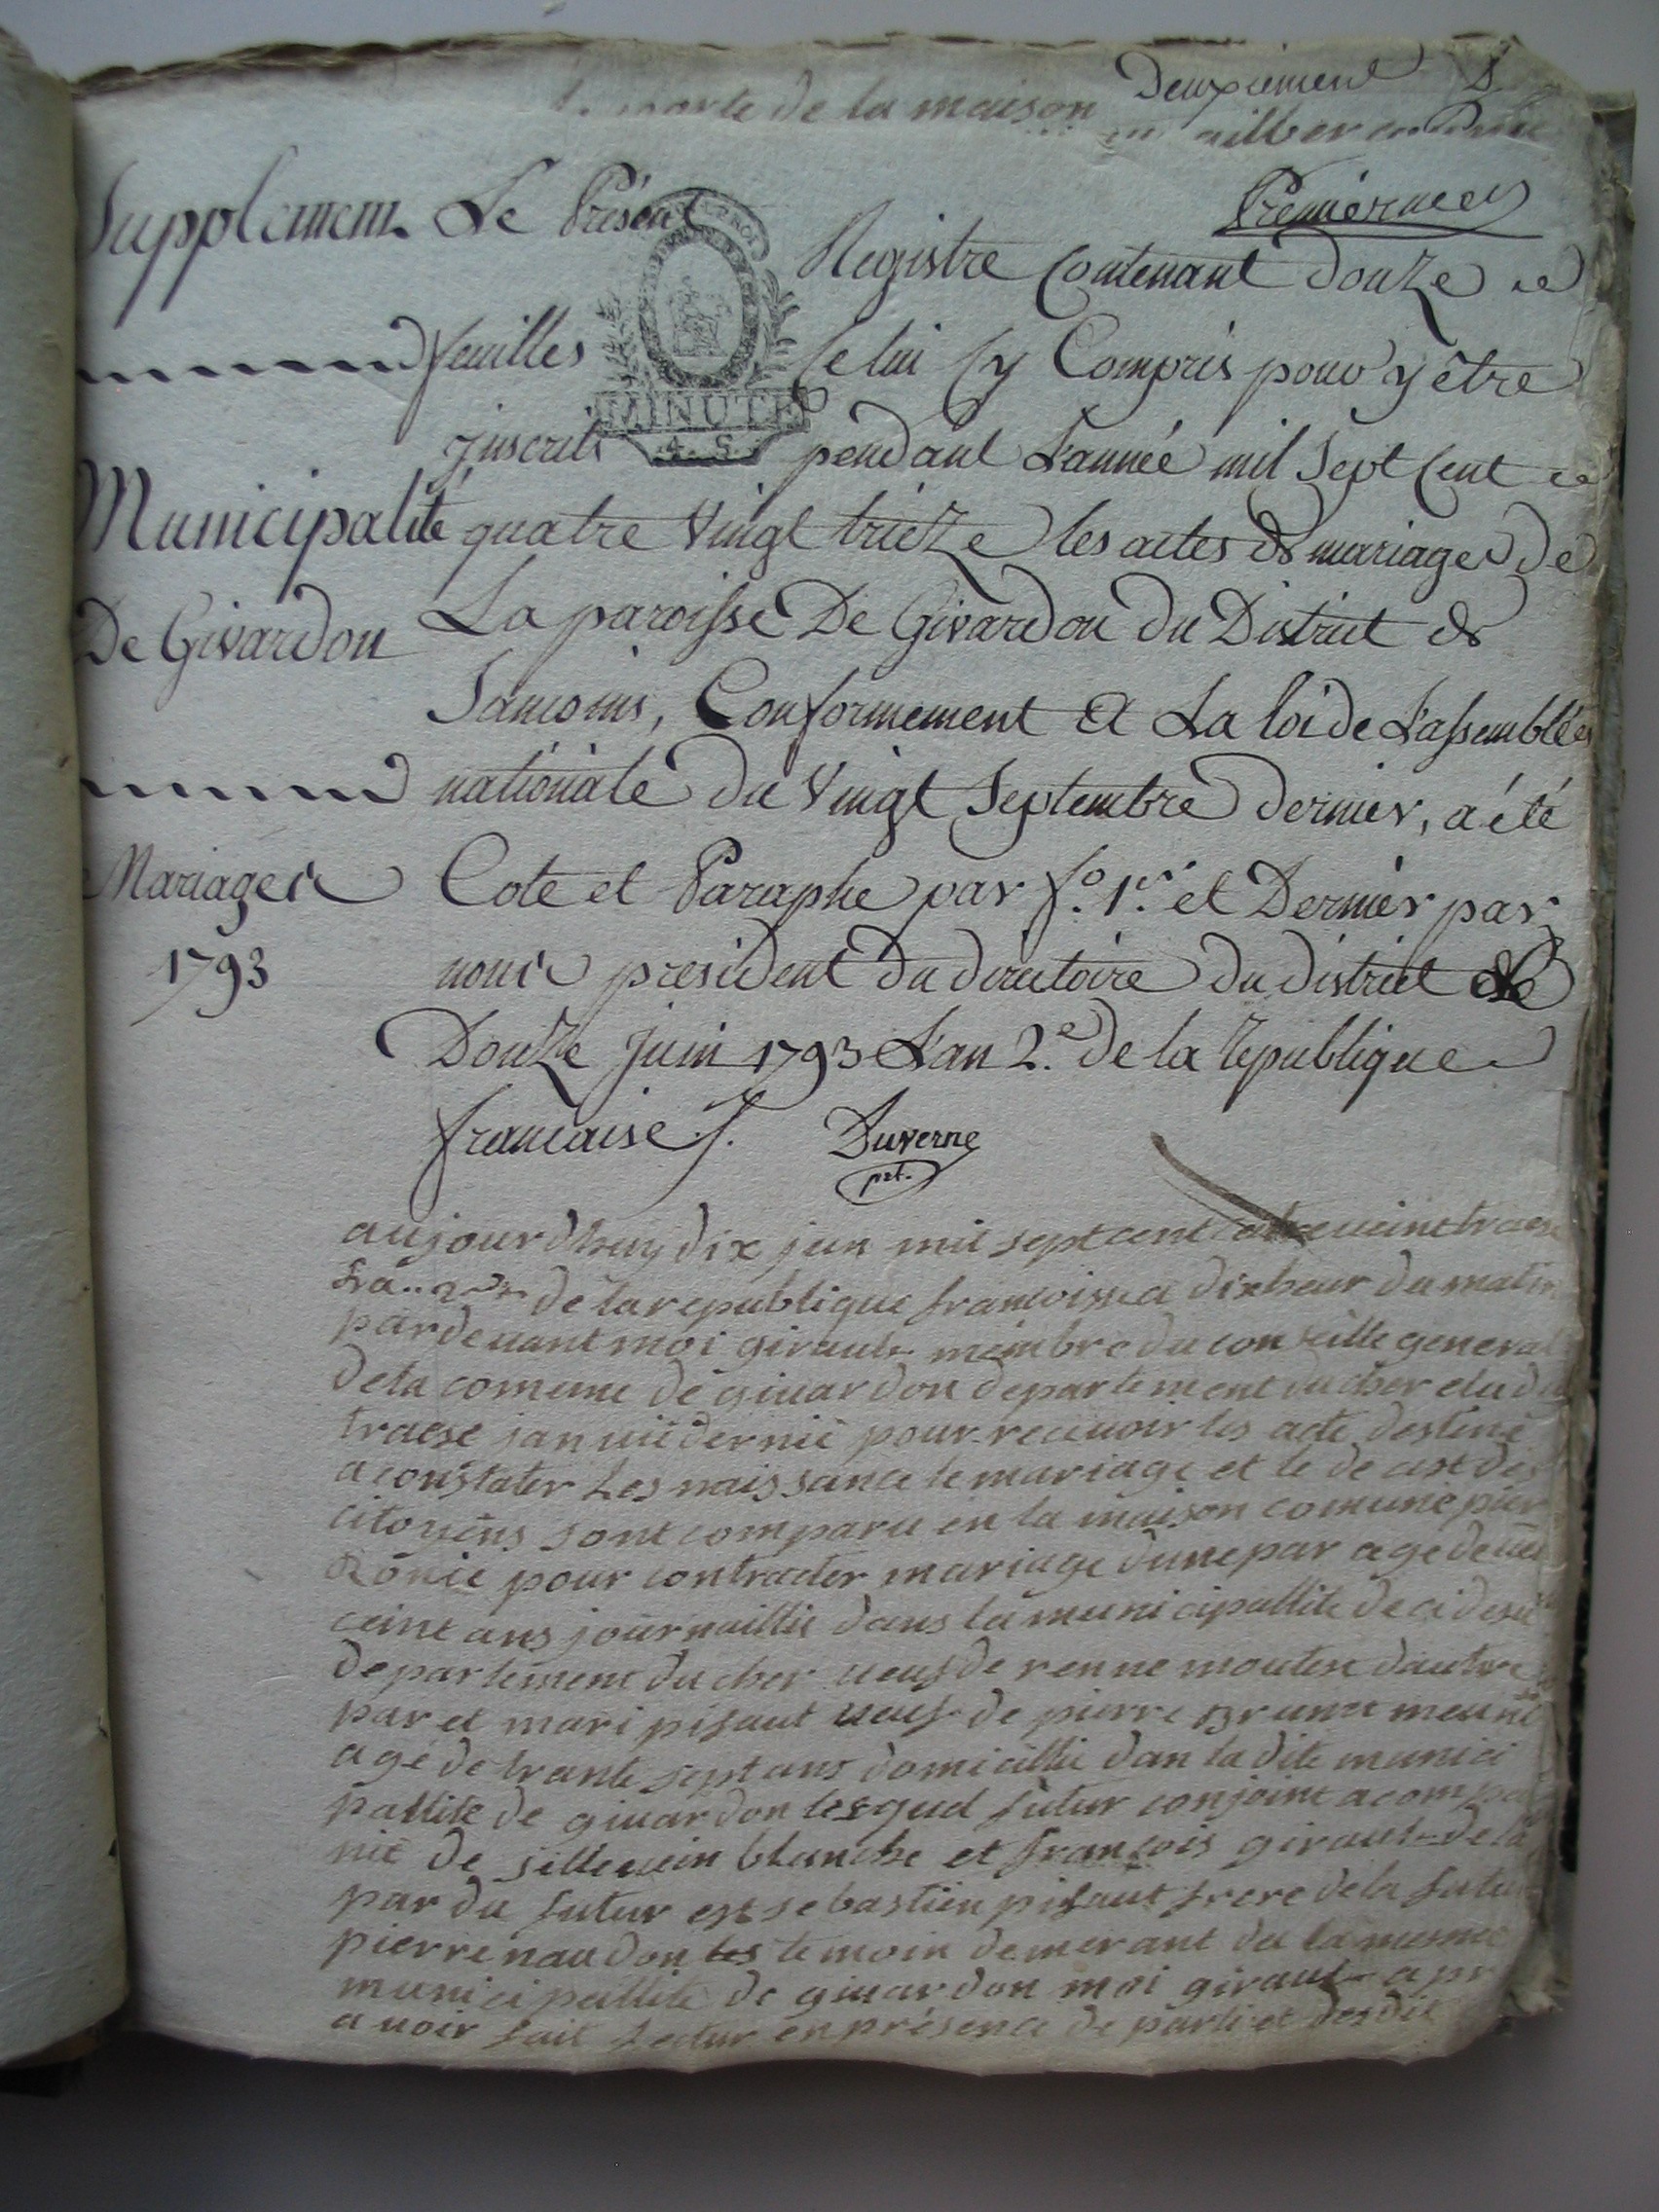 Deuxiement
porte de la maison
Premierement
Supplement
Municipalité
De Givardon
Mariages
1793
Le Présent Registre Contenant douze
feuilles Celui Cy Compris pour y être
jnscrits pendant L'année mil Sept Cent
quatre Vingt trieze les actes de mariages de
La paroisse De Givardon du District de
Sancoins, Conformement a La loi de L'assemblée
nationale du Vingt Septembre dernier, a été
Cote et Paraphe par fo. 1er. et Dernier par
nous president du directoire du district de
Douze juin 1793 L'an 2.e de la republique
francaise ./.
Duverne
pst.
MINUTE
4. S.
aujourdhuy dix jun mil sept cent catre veint traese
de la republique francoisse a dix heur du matin
pardevant moi girault membre du conseille general
de la comune de givardon departement du cher elu du
traese janvié dernié pour recevoir les acte destiné
a constater Les naissance le mariage et le decest des
citoyens sont comparu en la maison comune pier
pour contracter mariage dune par age de
ceint ans journaillié dans la municipallité de ci desu
departement du cher veuf de renne dautre
par et mari pifaut veuf de pierre Brunet meunié
agé de trante sept ans domicillié dan la dite munici
pallité de givardon lesquel futur conjoint acompa
nié de sillevein blanche et francois girault de la
par du futur est sebastien pifaut frere de la futur
pierre naudon les temoin demerant du la mesme
municipallité de givardon moi girault apr
avoir fait lectur en présence de parti et des dit